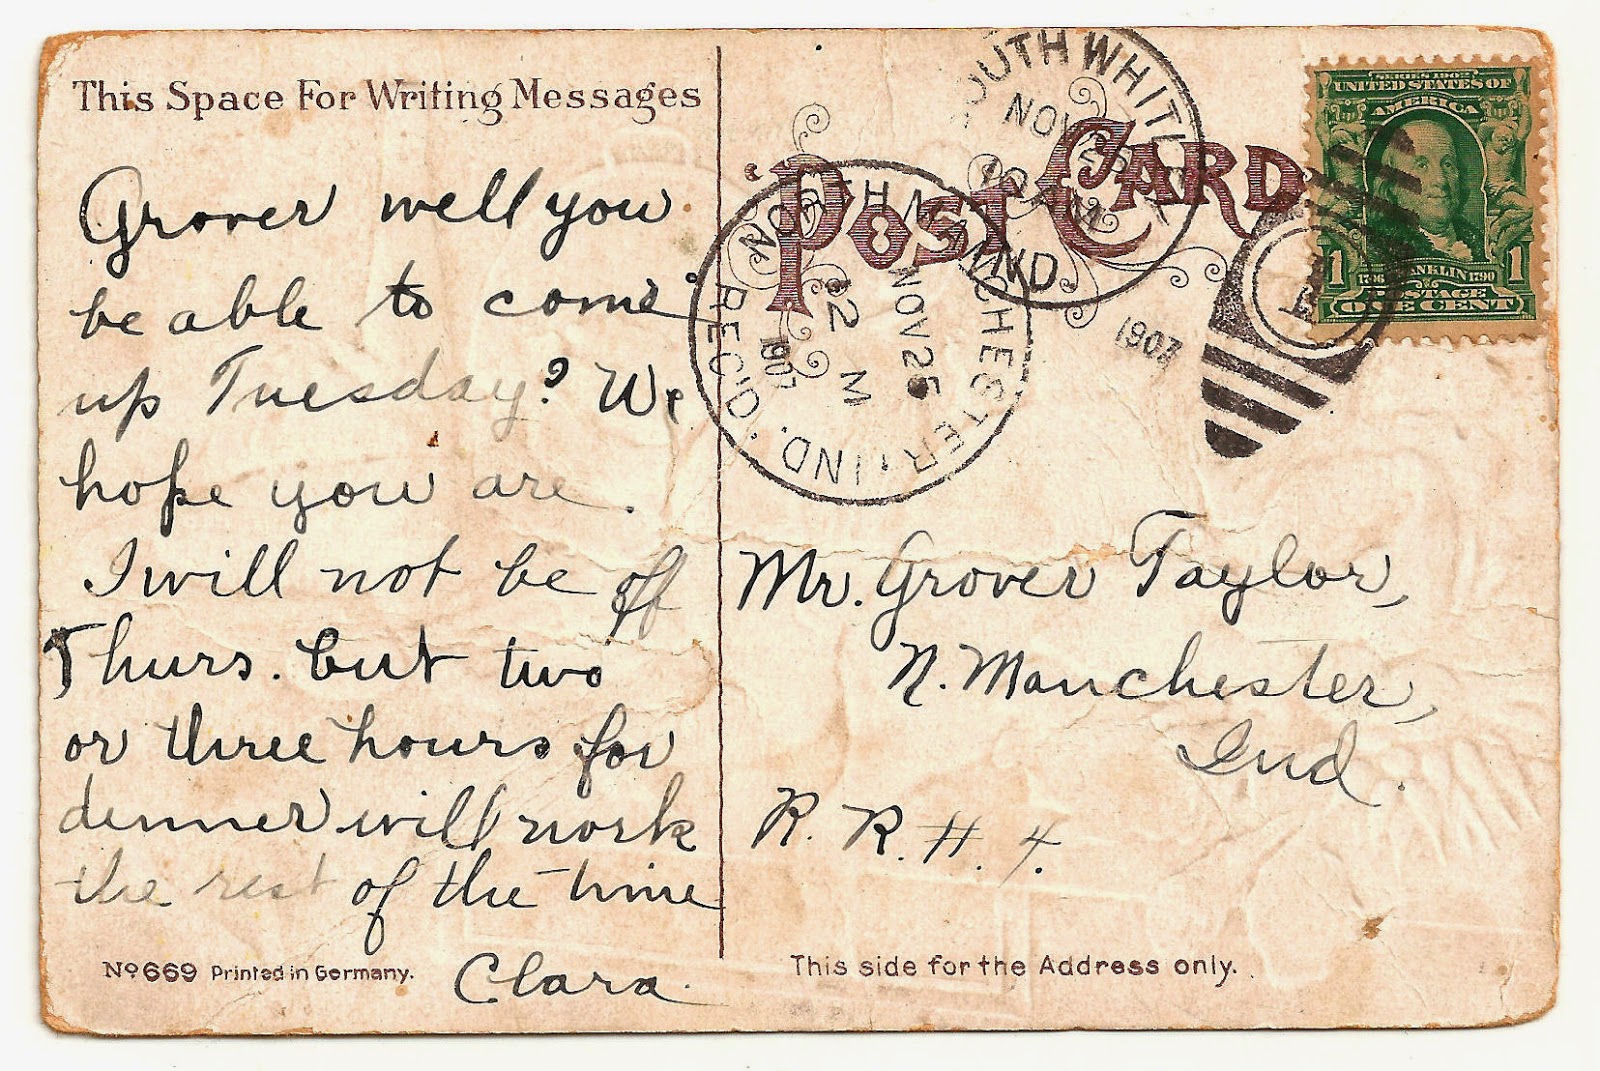 This Space For Writing Messages
Grover well you
be able to come
up Tuesday? We
hope you are.
I will not be off
Thurs. but two
or three hours for
dinner will work
the rest of the time
Clara.
No 669 Printed in Germany.
POST CARD
SOUTH WHITLEY
IND.
NOV 25
AM
1907
NORTH MANCHESTER, IND.
NOV 25
12 M
1907
REC'D.
SERIES 1902
UNITED STATES OF
AMERICA
1706 FRANKLIN 1790
1 POSTAGE 1
ONE CENT
Mr. Grover Taylor,
N. Manchester,
Ind.
R. R. #. 4.
This side for the Address only.